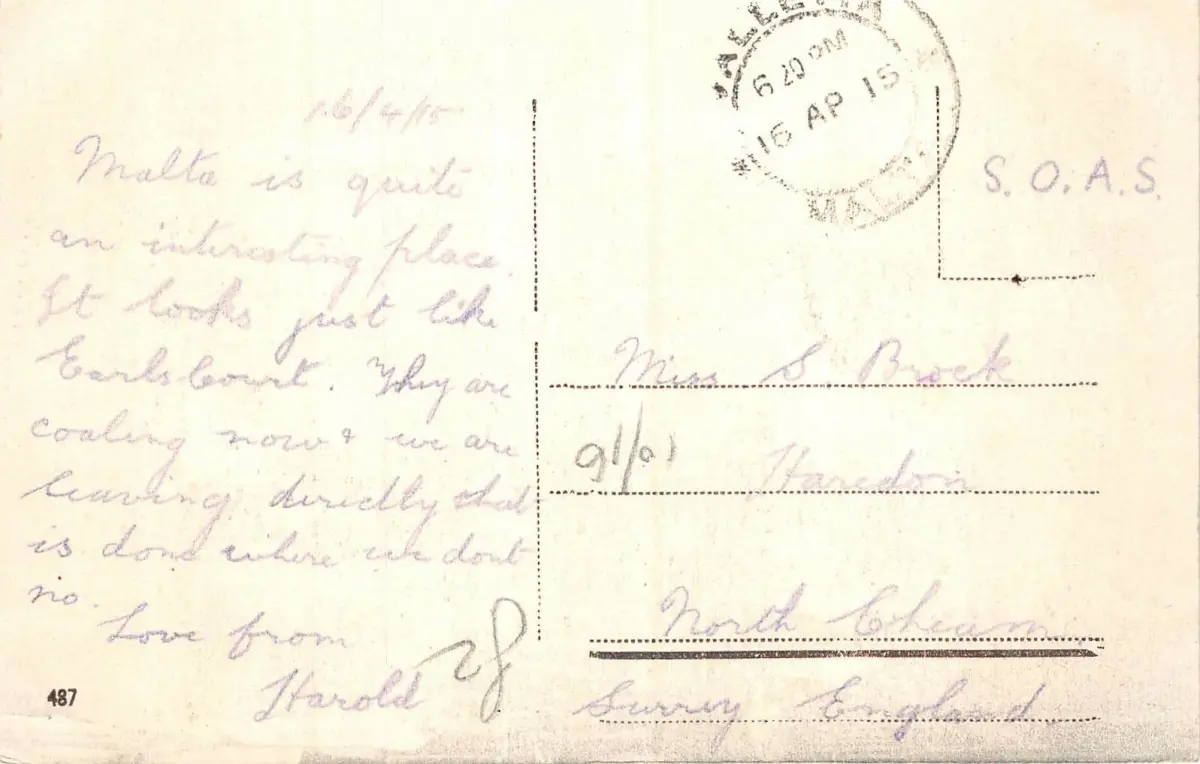 16/4/15
Malta is quite
an interesting place.
It looks just like
Earls Court. They are
coaling now & we are
leaving directly that
is done where we dont
no.
Love from
Harold
487
28
VALLETTA
6 20 PM
16 AP 15
MALTA
S. O. A. S.
Miss S. Brock
91/01
Haredon
North Cheam
Surrey England